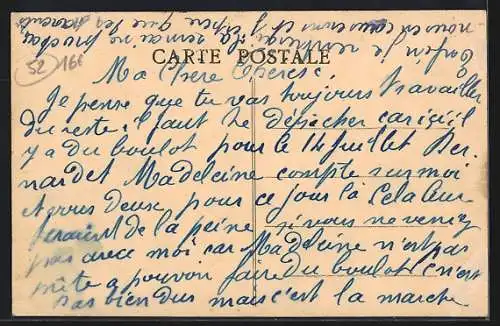 CARTE POSTALE
52 166
Ma Chère Therese,
Je pense que tu vas toujours travailler
du reste il faut te dépêcher car ici il
y a du boulot pour le 14 Juillet Ber
nardet Madeleine compte sur moi
et vous deux pour ce jour là Cela leur
ferait de la peine si vous ne venez
pas avec moi car Madeleine n'est pas
prête a pouvoir faire du boulot C n'est
pas bien dur mais c'est la marche
Enfin je
nous en
la semaine prochaine
j'espère que les